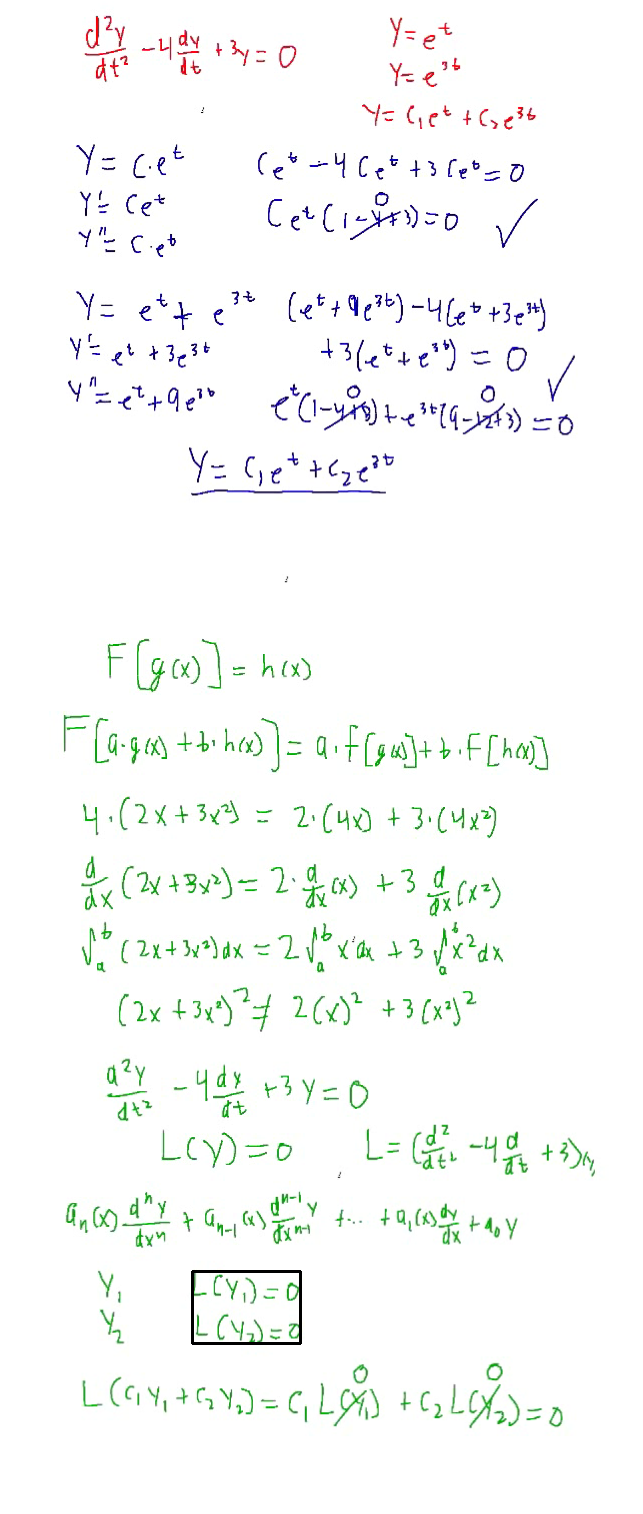 d²y/dt² - 4 dy/dt + 3y = 0
y = e^t
y = e^3t
y = c₁e^t + c₂e^3t
y = c·e^t
y' = ce^t
y'' = c·e^t
ce^t - 4ce^t + 3ce^t = 0
ce^t(1-4+3) = 0 ✓
0
y = e^t + e^3t
y' = e^t + 3e^3t
y'' = e^t + 9e^3t
(e^t + 9e^3t) - 4(e^t + 3e^3t)
+3(e^t + e^3t) = 0 ✓
0 0
e^t(1-4+3) + e^3t(9-12+3) = 0
y = c₁e^t + c₂e^3t
F[g(x)] = h(x)
F[a·g(x) + b·h(x)] = a·f[g(x)] + b·F[h(x)]
4·(2x + 3x²) = 2·(4x) + 3·(4x²)
d/dx (2x + 3x²) = 2·d/dx (x) + 3 d/dx (x²)
∫_a^b (2x + 3x²)dx = 2∫_a^b x dx + 3∫_a^b x² dx
(2x + 3x²)² ≠ 2(x)² + 3(x²)²
d²y/dt² - 4 dy/dt + 3y = 0
L(y) = 0 L = (d²/dt² - 4 d/dt + 3)
aₙ(x) dⁿy/dxⁿ + aₙ₋₁(x) dⁿ⁻¹y/dxⁿ⁻¹ + ... + a₁(x) dy/dx + a₀y
y₁ L(y₁) = 0
y₂ L(y₂) = 0
0 0
L(c₁y₁ + c₂y₂) = c₁L(y₁) + c₂L(y₂) = 0